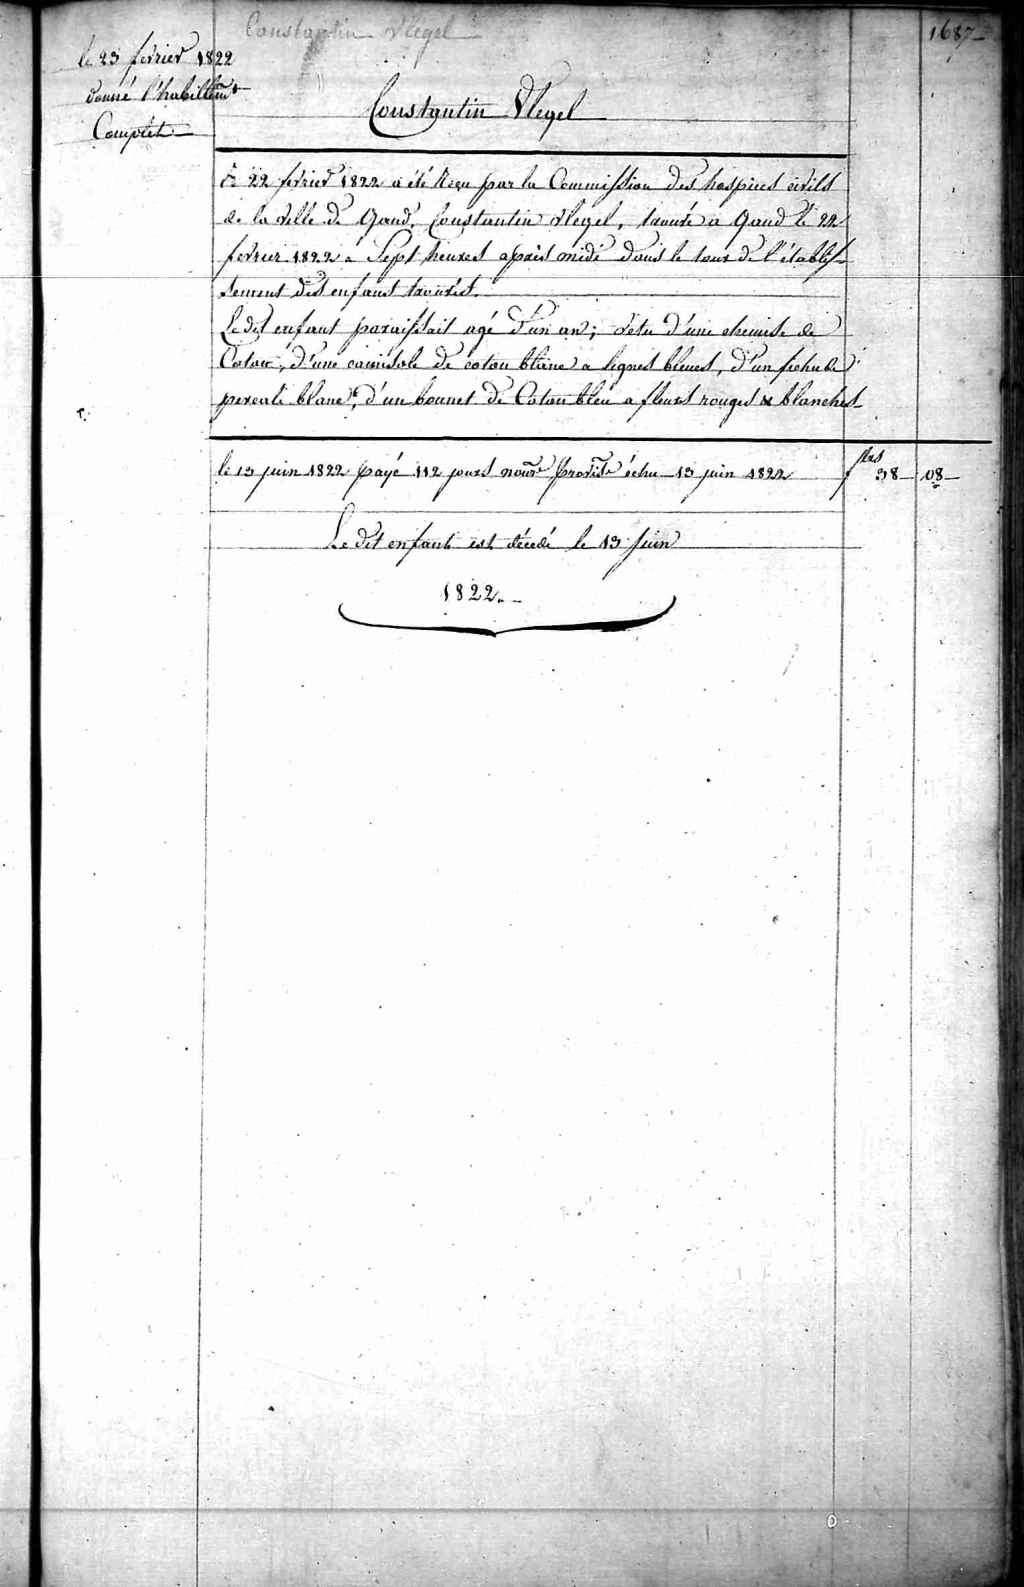 Constantin Vlegel
1687
le 23 février 1822
donné l'habillemt
Complet
Constantin Vlegel
Le 22 fevrier 1822 a été Reçu par la Commission des hospices civils
de la ville de Gand, Constantin Vlegel, trouvé a Gand le 22
fevrier 1822 a Sept heures après midi dans le tour de l'établis-
sement des enfans trouvés.
Le dit enfant paraissait agé d'un an; vetu d'une chemise de
Coton, d'une camisole de coton blanc a lignes bleues, d'un fichu de
percale blanc, d'un bonnet de Coton bleu a fleurs rouges & blanches
le 13 juin 1822 payé 112 jours nourre provisre échu 13 juin 1822 f 38 08
Le dit enfant est décédé le 13 Juin
1822.